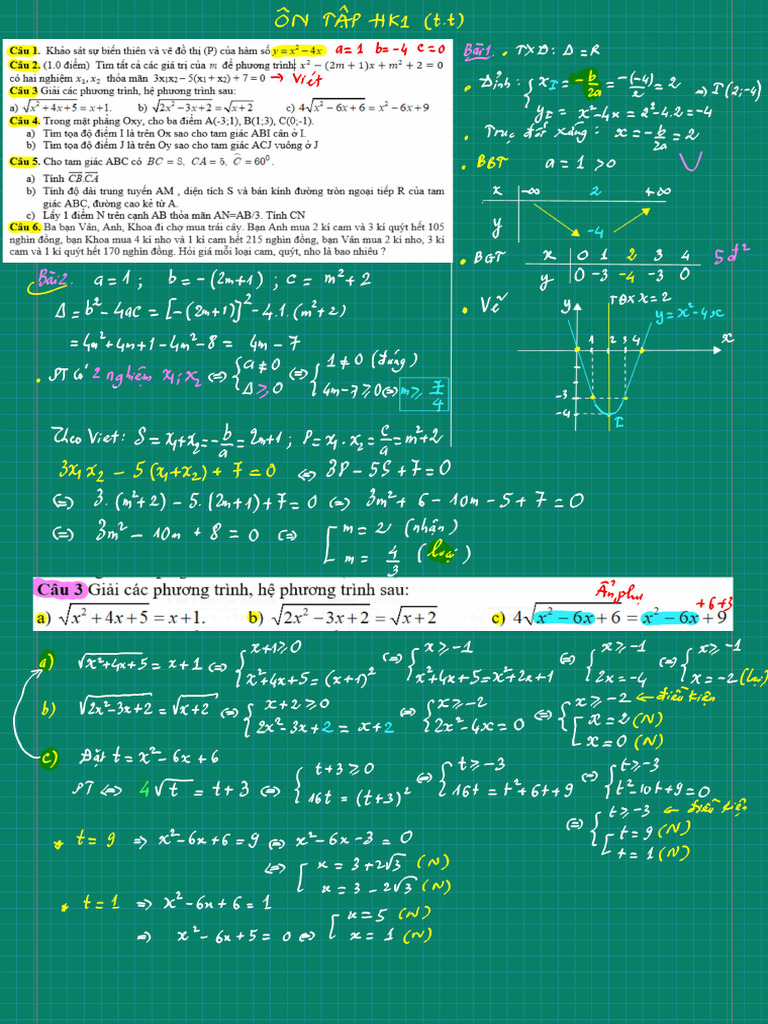 ÔN TẬP HK1 (t.t)
Câu 1. Khảo sát sự biến thiên và vẽ đồ thị (P) của hàm số y = x² – 4x a = 1 b = -4 c = 0
Câu 2. (1.0 điểm) Tìm tất cả các giá trị của m để phương trình x² − (2m + 1)x + m² + 2 = 0
có hai nghiệm x₁, x₂ thỏa mãn 3x₁x₂ – 5(x₁ + x₂) + 7 = 0 → Viét
Câu 3 Giải các phương trình, hệ phương trình sau:
a) √(x² + 4x + 5) = x + 1. b) √(2x² − 3x + 2) = √(x + 2) c) 4√(x² − 6x + 6) = x² − 6x + 9
Câu 4. Trong mặt phẳng Oxy, cho ba điểm A(-3;1), B(1;3), C(0;-1).
a) Tìm tọa độ điểm I là trên Ox sao cho tam giác ABI cân ở I.
b) Tìm tọa độ điểm J là trên Oy sao cho tam giác ACJ vuông ở J
Câu 5. Cho tam giác ABC có BC = 8, CA = 5, Ĉ = 60⁰.
a) Tính CB.CA
b) Tính độ dài trung tuyến AM , diện tích S và bán kính đường tròn ngoại tiếp R của tam
giác ABC, đường cao kẻ từ A.
c) Lấy 1 điểm N trên cạnh AB thỏa mãn AN=AB/3. Tính CN
Câu 6. Ba bạn Vân, Anh, Khoa đi chợ mua trái cây. Bạn Anh mua 2 kí cam và 3 kí quýt hết 105
nghìn đồng, bạn Khoa mua 4 kí nho và 1 kí cam hết 215 nghìn đồng, bạn Vân mua 2 kí nho, 3 kí
cam và 1 kí quýt hết 170 nghìn đồng. Hỏi giá mỗi loại cam, quýt, nho là bao nhiêu ?
Bài 1. • TXD: D = R
• Đỉnh: { x_I = -b/2a = -(-4)/2 = 2
y_I = x² - 4x = 2² - 4.2 = -4 ⇒ I(2; -4)
• Trục đối xứng: x = -b/2a = 2
• BBT a = 1 > 0
x -∞ 2 +∞
y -4
• BGT x 0 1 2 3 4 5 đ²
y 0 -3 -4 -3 0
• Vẽ y TĐX x = 2
y = x² - 4x
1 2 3 4 x
-3
-4 I
Bài 2. a = 1 ; b = -(2m+1) ; c = m² + 2
Δ = b² - 4ac = [-(2m+1)]² - 4.1.(m²+2)
= 4m² + 4m + 1 - 4m² - 8 = 4m - 7
• PT có 2 nghiệm x₁; x₂ ⇔ { a ≠ 0 ⇔ { 1 ≠ 0 (đúng)
Δ ≥ 0 4m - 7 ≥ 0 ⇔ m ≥ 7/4
Theo Viet: S = x₁ + x₂ = -b/a = 2m + 1 ; P = x₁ . x₂ = c/a = m² + 2
3x₁x₂ - 5(x₁ + x₂) + 7 = 0 ⇔ 3P - 5S + 7 = 0
⇔ 3.(m² + 2) - 5.(2m + 1) + 7 = 0 ⇔ 3m² + 6 - 10m - 5 + 7 = 0
⇔ 3m² - 10m + 8 = 0 ⇔ [ m = 2 (nhận)
m = 4/3 (loại)
Câu 3 Giải các phương trình, hệ phương trình sau: Ẩn phụ
a) √(x² + 4x + 5) = x + 1. b) √(2x² − 3x + 2) = √(x + 2) c) 4√(x² − 6x + 6) = x² − 6x + 9 +6+3
a) √(x²+4x+5) = x + 1 ⇔ { x + 1 ≥ 0 ⇔ { x ≥ -1 ⇔ { x ≥ -1 ⇔ { x ≥ -1
x² + 4x + 5 = (x+1)² x² + 4x + 5 = x² + 2x + 1 2x = -4 x = -2 (loại)
b) √(2x²-3x+2) = √(x+2) ⇔ { x + 2 ≥ 0 ⇔ { x ≥ -2 ⇔ { x ≥ -2 ← điều kiện
2x² - 3x + 2 = x + 2 2x² - 4x = 0 [ x = 2 (N)
x = 0 (N)
c) Đặt t = x² - 6x + 6
PT ⇔ 4√t = t + 3 ⇔ { t + 3 ≥ 0 ⇔ { t ≥ -3 ⇔ { t ≥ -3
16t = (t+3)² 16t = t² + 6t + 9 t² - 10t + 9 = 0
⇔ { t ≥ -3 ← điều kiện
[ t = 9 (N)
t = 1 (N)
* t = 9 ⇒ x² - 6x + 6 = 9 ⇔ x² - 6x - 3 = 0
⇔ [ x = 3 + 2√3 (N)
x = 3 - 2√3 (N)
* t = 1 ⇒ x² - 6x + 6 = 1
⇒ x² - 6x + 5 = 0 ⇔ [ x = 5 (N)
x = 1 (N)